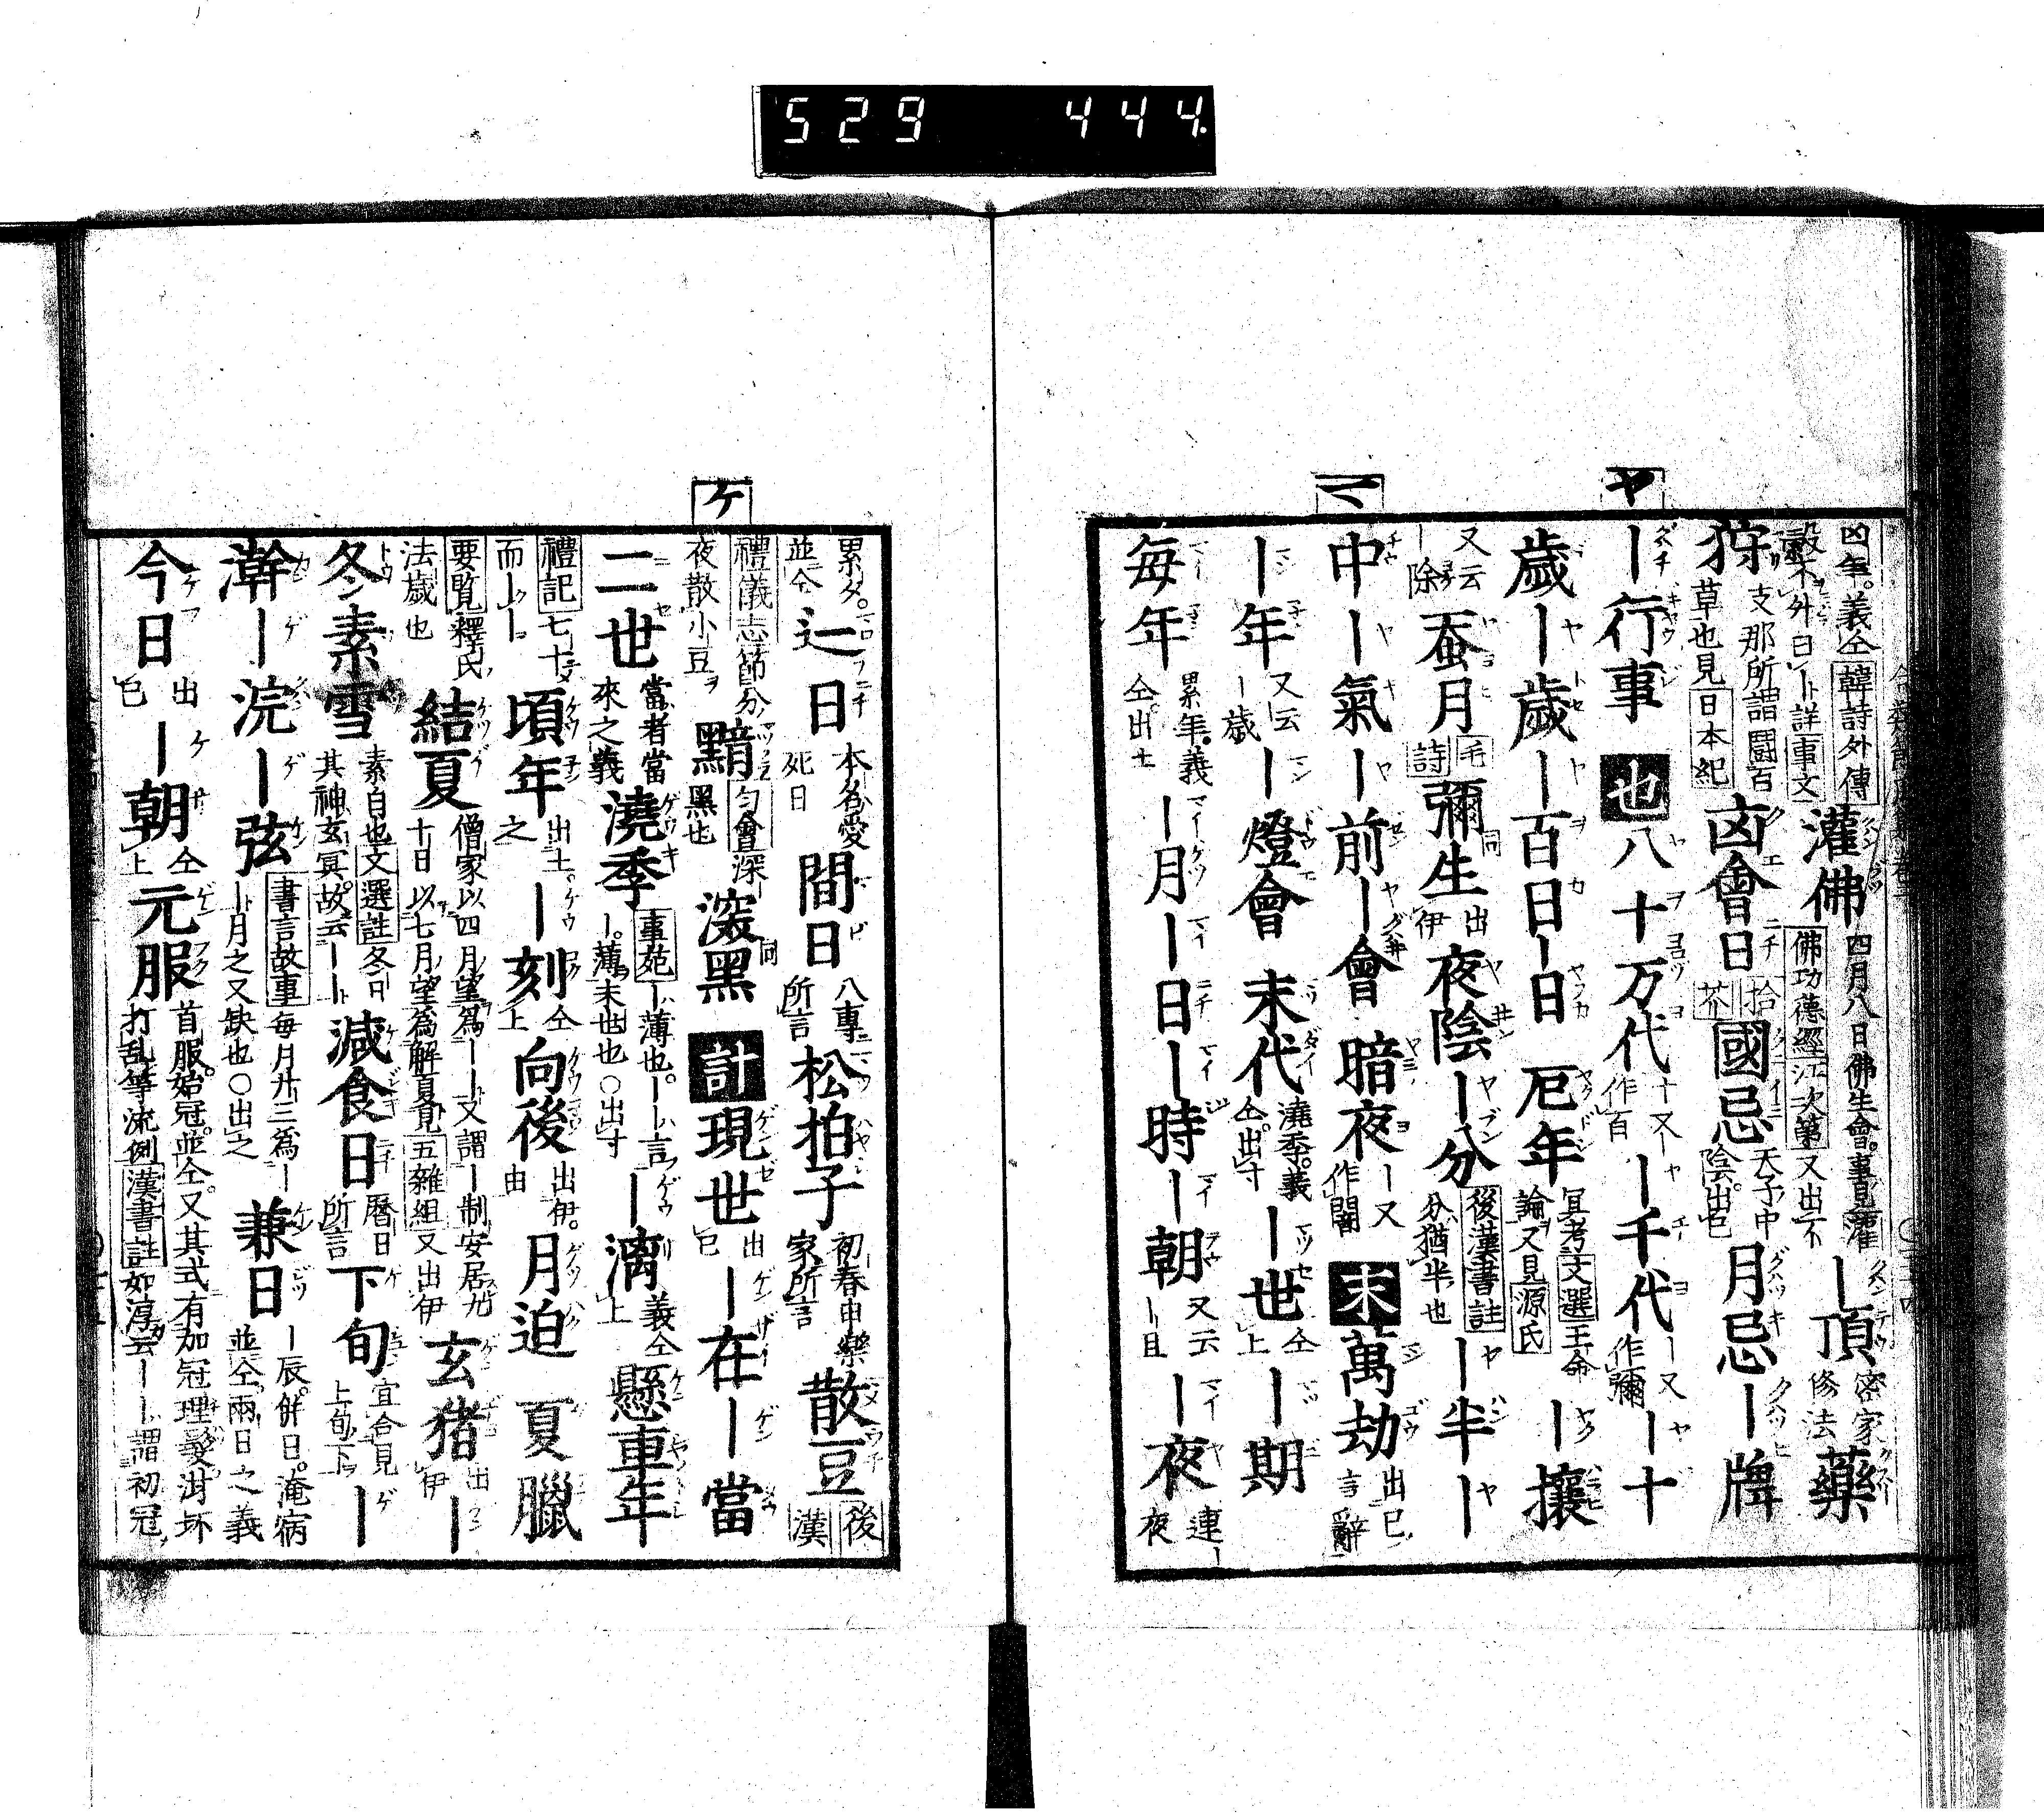 529 444.
ヤ
マ
凶年。義仝韓詩外傳
設不外曰ー詳事文
灌佛 四月八日佛生會。事見灌
佛功德經江次第又出不
ー頂 密家
修法 藥
狩 支那所謂鬪百
草也見日本紀 凶會日 拾
芥 國忌 天子中
陰。出巳 月忌ー牌
ー行事 也 八十万代 十又ー
作百 ー千代 ー又
作彌 ー十
歲ー歲ー百日ー日 厄年 冥考文選王命
論又見源氏 ー攘
又云
ー除 蚕月 毛
詩 彌生 出
伊 夜陰ー分 後漢書註
分猶半也 ー半ー
中ー氣ー前ー會 暗夜 ー又
作闇 末 萬劫 出巳
言辭
ー年 又云
ー歲 ー燈會 末代 澆季。義
仝。出寸 ー世 仝
上 ー期
每年 累年。義
仝出土 ー月ー日ー時ー朝 又云
ー旦 ー夜 連ー
夜
ケ
累夕。
並仝 辶日 本名愛
死日 間日 八專
所言 松拍子 初春申樂
家所言 散豆 後
漢
禮儀志節分
夜散小豆 黯 匀會深
黑也 㴞黑 計 現世 出
巳 ー在ー當
二世 當者當
來之義 澆季 事苑ー薄也。ーー言
ー。薄末世也○出寸 ー漓 義仝
上 懸車年
禮記七十
而ーー 頃年 出土。
之 ー刻 仝
上 向後 出伊。
由 月迫 夏臘
要覧釋氏
法歲也 結夏 僧家以四月望為ーー又謂ー制安居九
十日以七月望為解夏見五雜組又出伊 玄猪 出
伊 ー
冬素雪 素白也文選註冬曰
其神玄冥。故云ーー 減食日 曆日
所言 下旬 宜合見
上旬下 ー
澣ー浣ー弦 書言故事每月廿三為ー
ー月之又缺也○出之 兼日 ー辰。併日。淹病
並仝兩日之義
今日 出
巳 ー朝 仝
上 元服 首服。始冠。並仝。又其式有加冠理髮泔坏
打乱等流例漢書註如淳云ーー謂初冠